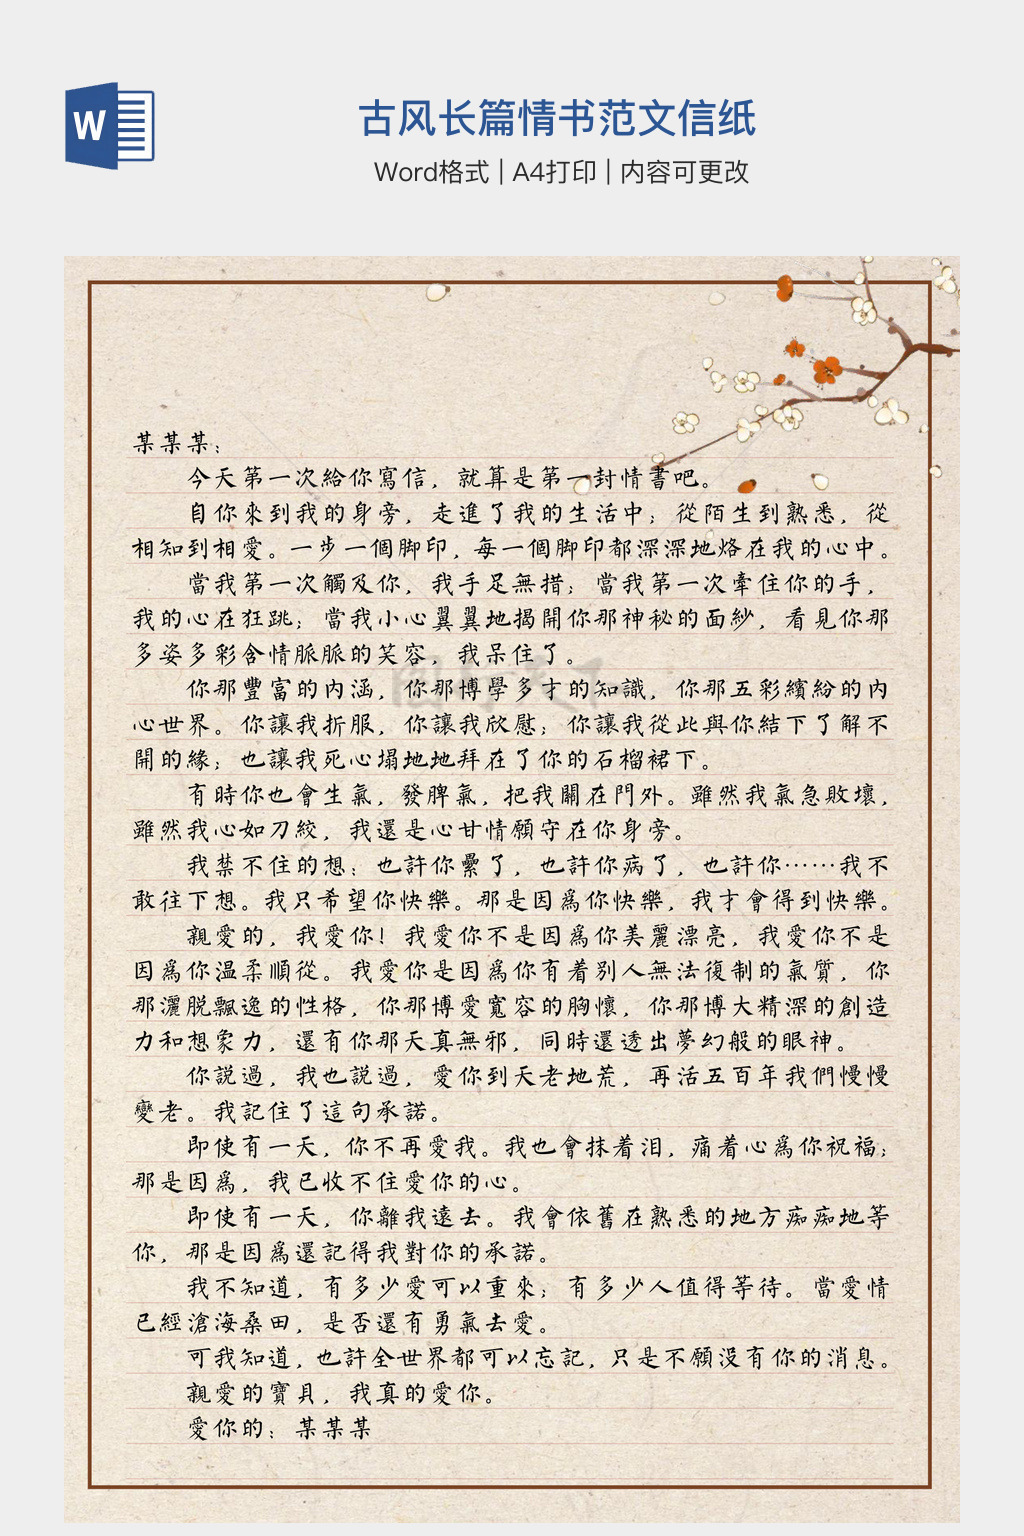 W
古风长篇情书范文信纸
Word格式 | A4打印 | 内容可更改
某某某：
今天第一次給你寫信，就算是第一封情書吧。
自你來到我的身旁，走進了我的生活中；從陌生到熟悉，從
相知到相愛。一步一個脚印，每一個脚印都深深地烙在我的心中。
當我第一次觸及你，我手足無措；當我第一次牽住你的手，
我的心在狂跳；當我小心翼翼地揭開你那神秘的面紗，看見你那
多姿多彩含情脈脈的笑容，我呆住了。
你那豐富的内涵，你那博學多才的知識，你那五彩繽紛的内
心世界。你讓我折服，你讓我欣慰；你讓我從此與你結下了解不
開的緣；也讓我死心塌地地拜在了你的石榴裙下。
有時你也會生氣，發脾氣，把我關在門外。雖然我氣急敗壞，
雖然我心如刀絞，我還是心甘情願守在你身旁。
我禁不住的想：也許你纍了，也許你病了，也許你……我不
敢往下想。我只希望你快樂。那是因爲你快樂，我才會得到快樂。
親愛的，我愛你！我愛你不是因爲你美麗漂亮，我愛你不是
因爲你温柔順從。我愛你是因爲你有着别人無法復制的氣質，你
那灑脱飄逸的性格，你那博愛寬容的胸懷，你那博大精深的創造
力和想象力，還有你那天真無邪，同時還透出夢幻般的眼神。
你説過，我也説過，愛你到天老地荒，再活五百年我們慢慢
變老。我記住了這句承諾。
即使有一天，你不再愛我。我也會抹着泪，痛着心爲你祝福；
那是因爲，我已收不住愛你的心。
即使有一天，你離我遠去。我會依舊在熟悉的地方痴痴地等
你，那是因爲還記得我對你的承諾。
我不知道，有多少愛可以重來；有多少人值得等待。當愛情
已經滄海桑田，是否還有勇氣去愛。
可我知道，也許全世界都可以忘記，只是不願没有你的消息。
親愛的寶貝，我真的愛你。
愛你的：某某某